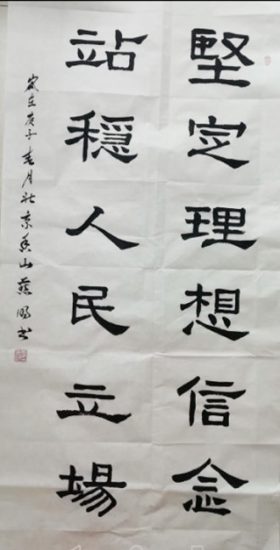 堅定理想信念
站穩人民立場
歲在庚子春月於京香山蘇鵬書